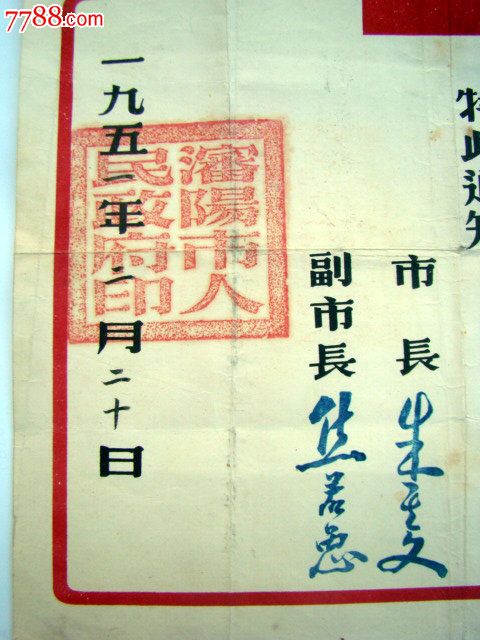 7788.com
特此通知
市長 朱其文
副市長 焦若愚
瀋陽市人
民政府印
一九五一年二月二十日